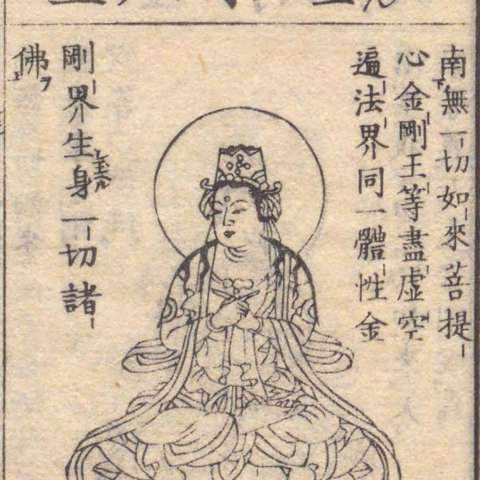 南無一切如來菩提
心金剛王等盡虛空
遍法界同一體性金
剛界生身一切諸
佛